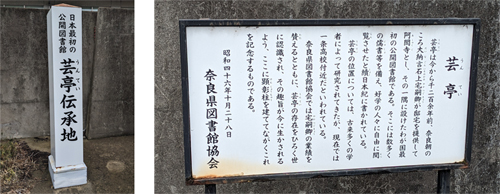 日本最初の
公開図書館
芸亭伝承地
うんてい
芸亭
芸亭は今から千二百余年前、奈良朝の
ころ大納言石上宅嗣卿が邸宅を提供して
阿閦寺とし、その一隅に設けたわが国最
初の公開図書館である。そこには数多く
の儒書等を備え、好学の人々に自由に閲
覧させたと続日本紀に書かれている。
芸亭の位置については、古来多くの学
者によって研究されてきたが、現在では
一条高校付近だといわれている。
奈良県図書館協会では宅嗣卿の業績を
賛えるとともに、芸亭の存在をひろく世
に認識され、その趣旨が今に生かされる
よう、ここに顕彰柱を建てて永くこれ
を記念するものである。
昭和四十六年十月二十八日
奈良県図書館協会